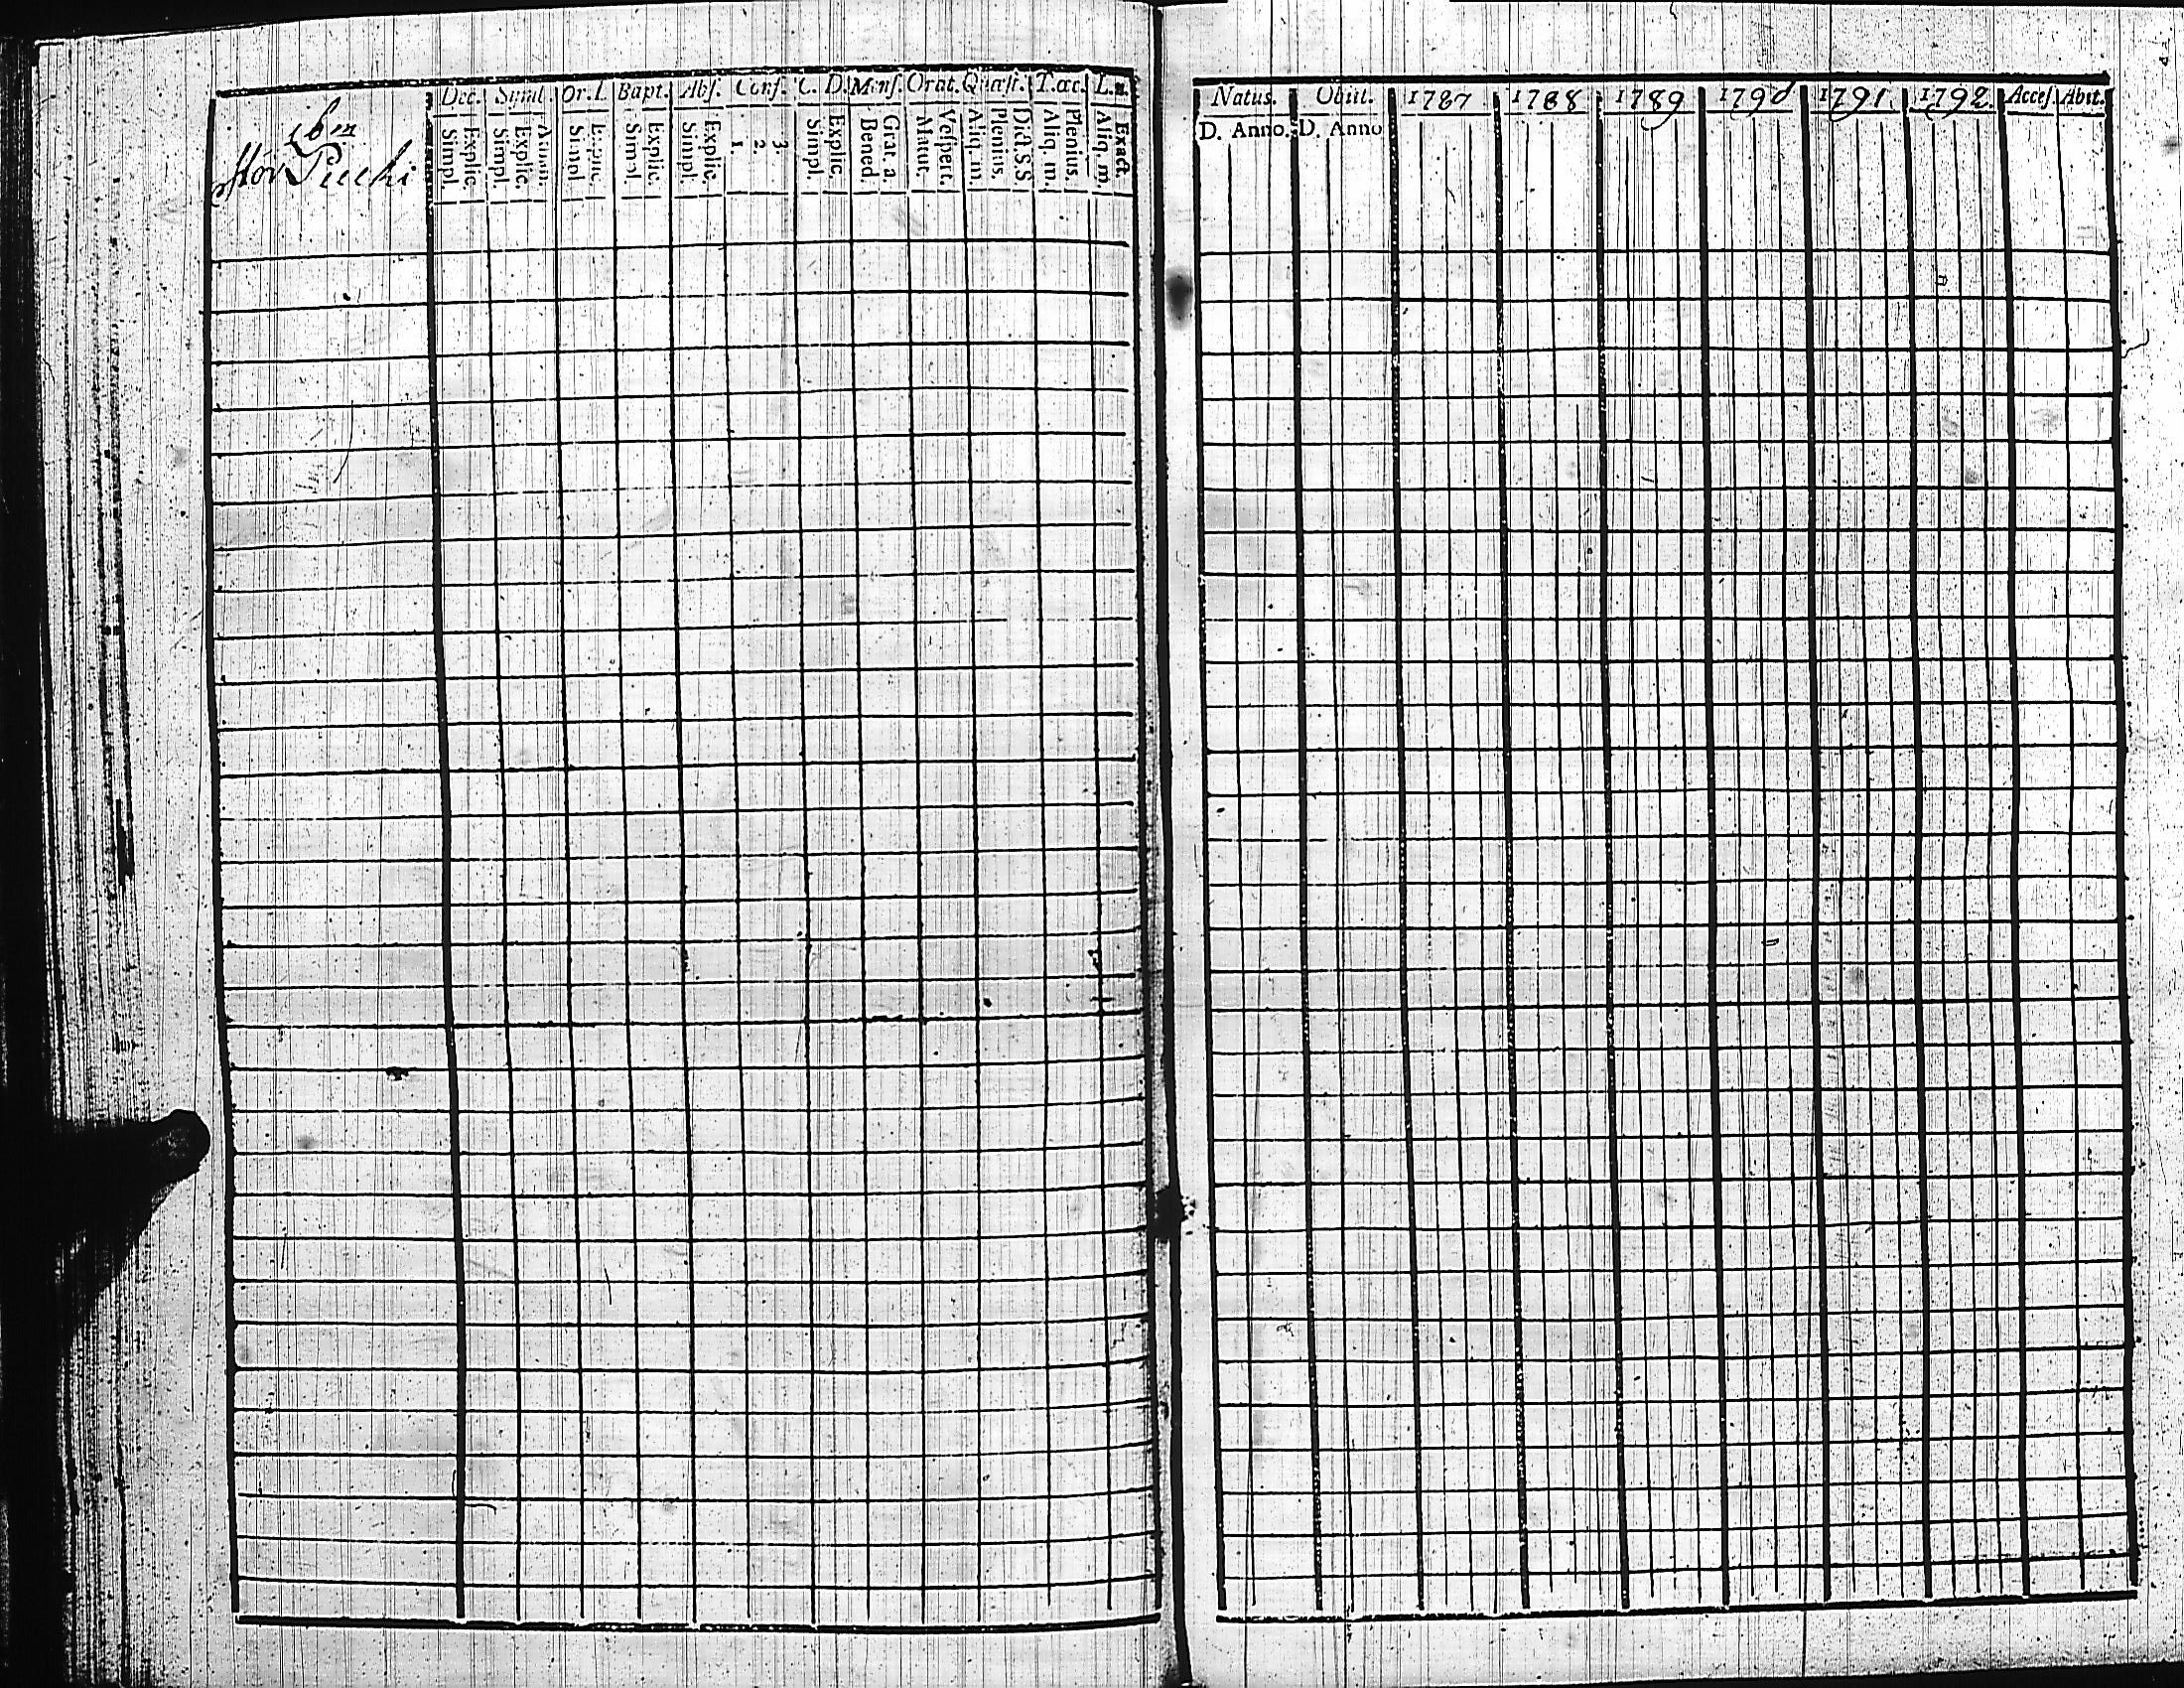 Dec. Symb. Or. D. Bapt. Abs. Conf. C. D. Mens. Orat. Quæst. T. œc. L. n.
Simpl. Explic. Simpl. Explic. Athan. Simpl. Explic. Simpl. Explic. Simpl. Explic. 1. 2. 3. Simpl. Explic. Bened. Grat. a. Matut. Vespert. Aliq. m. Plenius. Dict. S.S. Aliq. m. Plenius. Aliq. m. Exact.
Puchi
Natus. Obiit. 1787 1788 1789 1790 1791 1792 Acces. Abit.
D. Anno. D. Anno